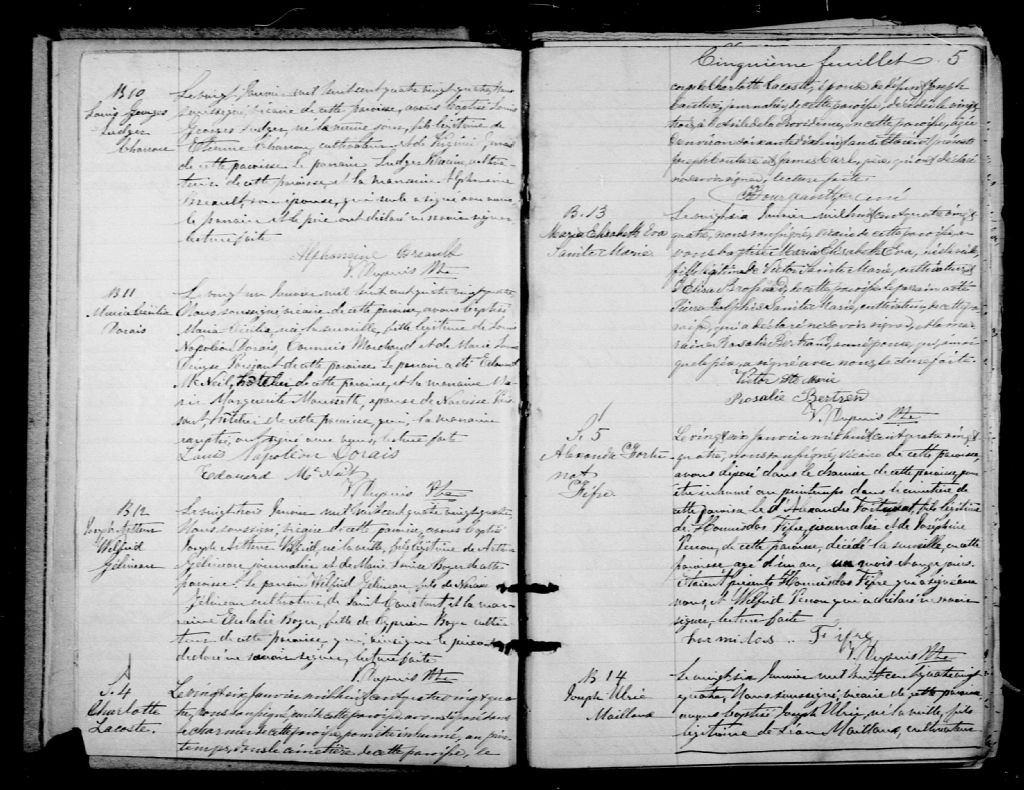 B10
Louis Georges
Ludger
Charron
Le vingt Janvier mil huit cent quatre vingt quatre Nous
soussigné, vicaire de cette paroisse, avons baptisé Louis
Georges Ludger, né la même jour, fils légitime de
Etienne Charron, cultivateur et de Virginie
de cette paroisse. Le parrain Ludger cultiva
teur de cette paroisse et la marraine Alphonsine
Breault son épouse, qui seule a signé avec nous,
le parrain et le père ont déclaré ne savoir signer
lecture faite
Alphonsine Breault
V. Dupuis Ptre
B11
Maria Cécilia
Dorais
Le vingt un Janvier mil huit cent quatre vingt quatre
Nous soussigné, vicaire de cette paroisse, avons baptisé
Maria Cécilia, née la surveille, fille légitime de Louis
Napoléon Dorais, Commis Marchand et de Marie
de cette paroisse. Le parrain a été Edouard
McNeil, hôtelier de cette paroisse, et la marraine Ma
rie Marguerite épouse de Narcisse
hôtelier de cette paroisse, qui, la marraine
exceptée, ont signé avec nous, lecture faite
Louis Napoléon Dorais
Edouard McNeil
V. Dupuis Ptre
B12
Joseph Arthur
Wilfrid
Gélineau
Le vingt trois Janvier mil huit cent quatre vingt quatre
Nous soussigné, vicaire de cette paroisse, avons baptisé
Joseph Arthur Wilfrid, né la veille, fils légitime de Arthur
Gélineau journalier et de Marie Louise Boyer de cette
paroisse. Le parrain Wilfrid Gélineau, fils de
Gélineau cultivateur, de Saint Constant et la mar
raine Eulalie Boyer, fille de Cyprien Boyer cultiva
teur de cette paroisse, qui, ainsi que le père ont
déclaré ne savoir signer, lecture faite
V. Dupuis Ptre
S. 4
Charlotte
Lacoste.
Le vingt six Janvier mil huit cent quatre vingt qua
tre, nous soussigné, curé de cette paroisse avons déposé dans
le charnier de cette paroisse pour être inhumé, au prin
temps, dans le cimetière de cette paroisse, le
Cinquième feuillet 5
corps de Charlotte Lacoste, épouse de défunt Joseph
journalier, de cette paroisse, décédée le vingt
trois, à l'Asile de la Providence, en cette paroisse, âgée
d'environ soixante et huit ans. Etaient présents
Joseph Couture et James qui ont déclaré
ne savoir signer, lecture faite.
Bourgeault ptre curé
B. 13
Maria Elisabeth Eva
Sainte Marie
Le vingt six Janvier mil huit cent quatre vingt
quatre, nous soussigné, vicaire de cette paroisse a
vons baptisé Maria Elisabeth Eva, née la veille,
fille légitime de Victor Sainte Marie, cultivateur et
d'Elise Brossard, de cette paroisse, le parrain a été
Pierre Delphis Sainte Marie, cultivateur, de cette pa
roisse, qui a déclaré ne savoir signer, et la mar
raine Rosalie Bertrand, son épouse, qui, ainsi
que le père, a signé avec nous, lecture faite.
Victor Ste Marie
Rosalie Bertrend
V. Dupuis Ptre
S. 5
Alexandre Fortu
nat
Fifre.
Le vingt six janvier mil huit cent quatre vingt
quatre, nous soussigné, vicaire de cette paroisse,
avons déposé dans le charnier de cette paroisse, pour
être inhumé au printemps dans le cimetière de
cette paroisse le d'Alexandre Fortunat, fils légitime
de Hormisdas Fifre, journalier et de Joséphine
Perron, de cette paroisse, décédé la surveille, en cette
paroisse, âgé d'un an, un mois et onze jours.
Etaient présents Hormisdas Fifre qui a signé avec
nous, et Wilfrid Perron qui a déclaré ne savoir
signer, lecture faite
hormidas Fifre
V. Dupuis Ptre
B 14
Joseph Ulric
Mailloux
Le vingt six Janvier mil huit cent quatre vingt
quatre, Nous soussigné vicaire de cette paroisse
avons baptisé Joseph Ulric, né la veille, fils
légitime de Jean Mailloux, cultivateur